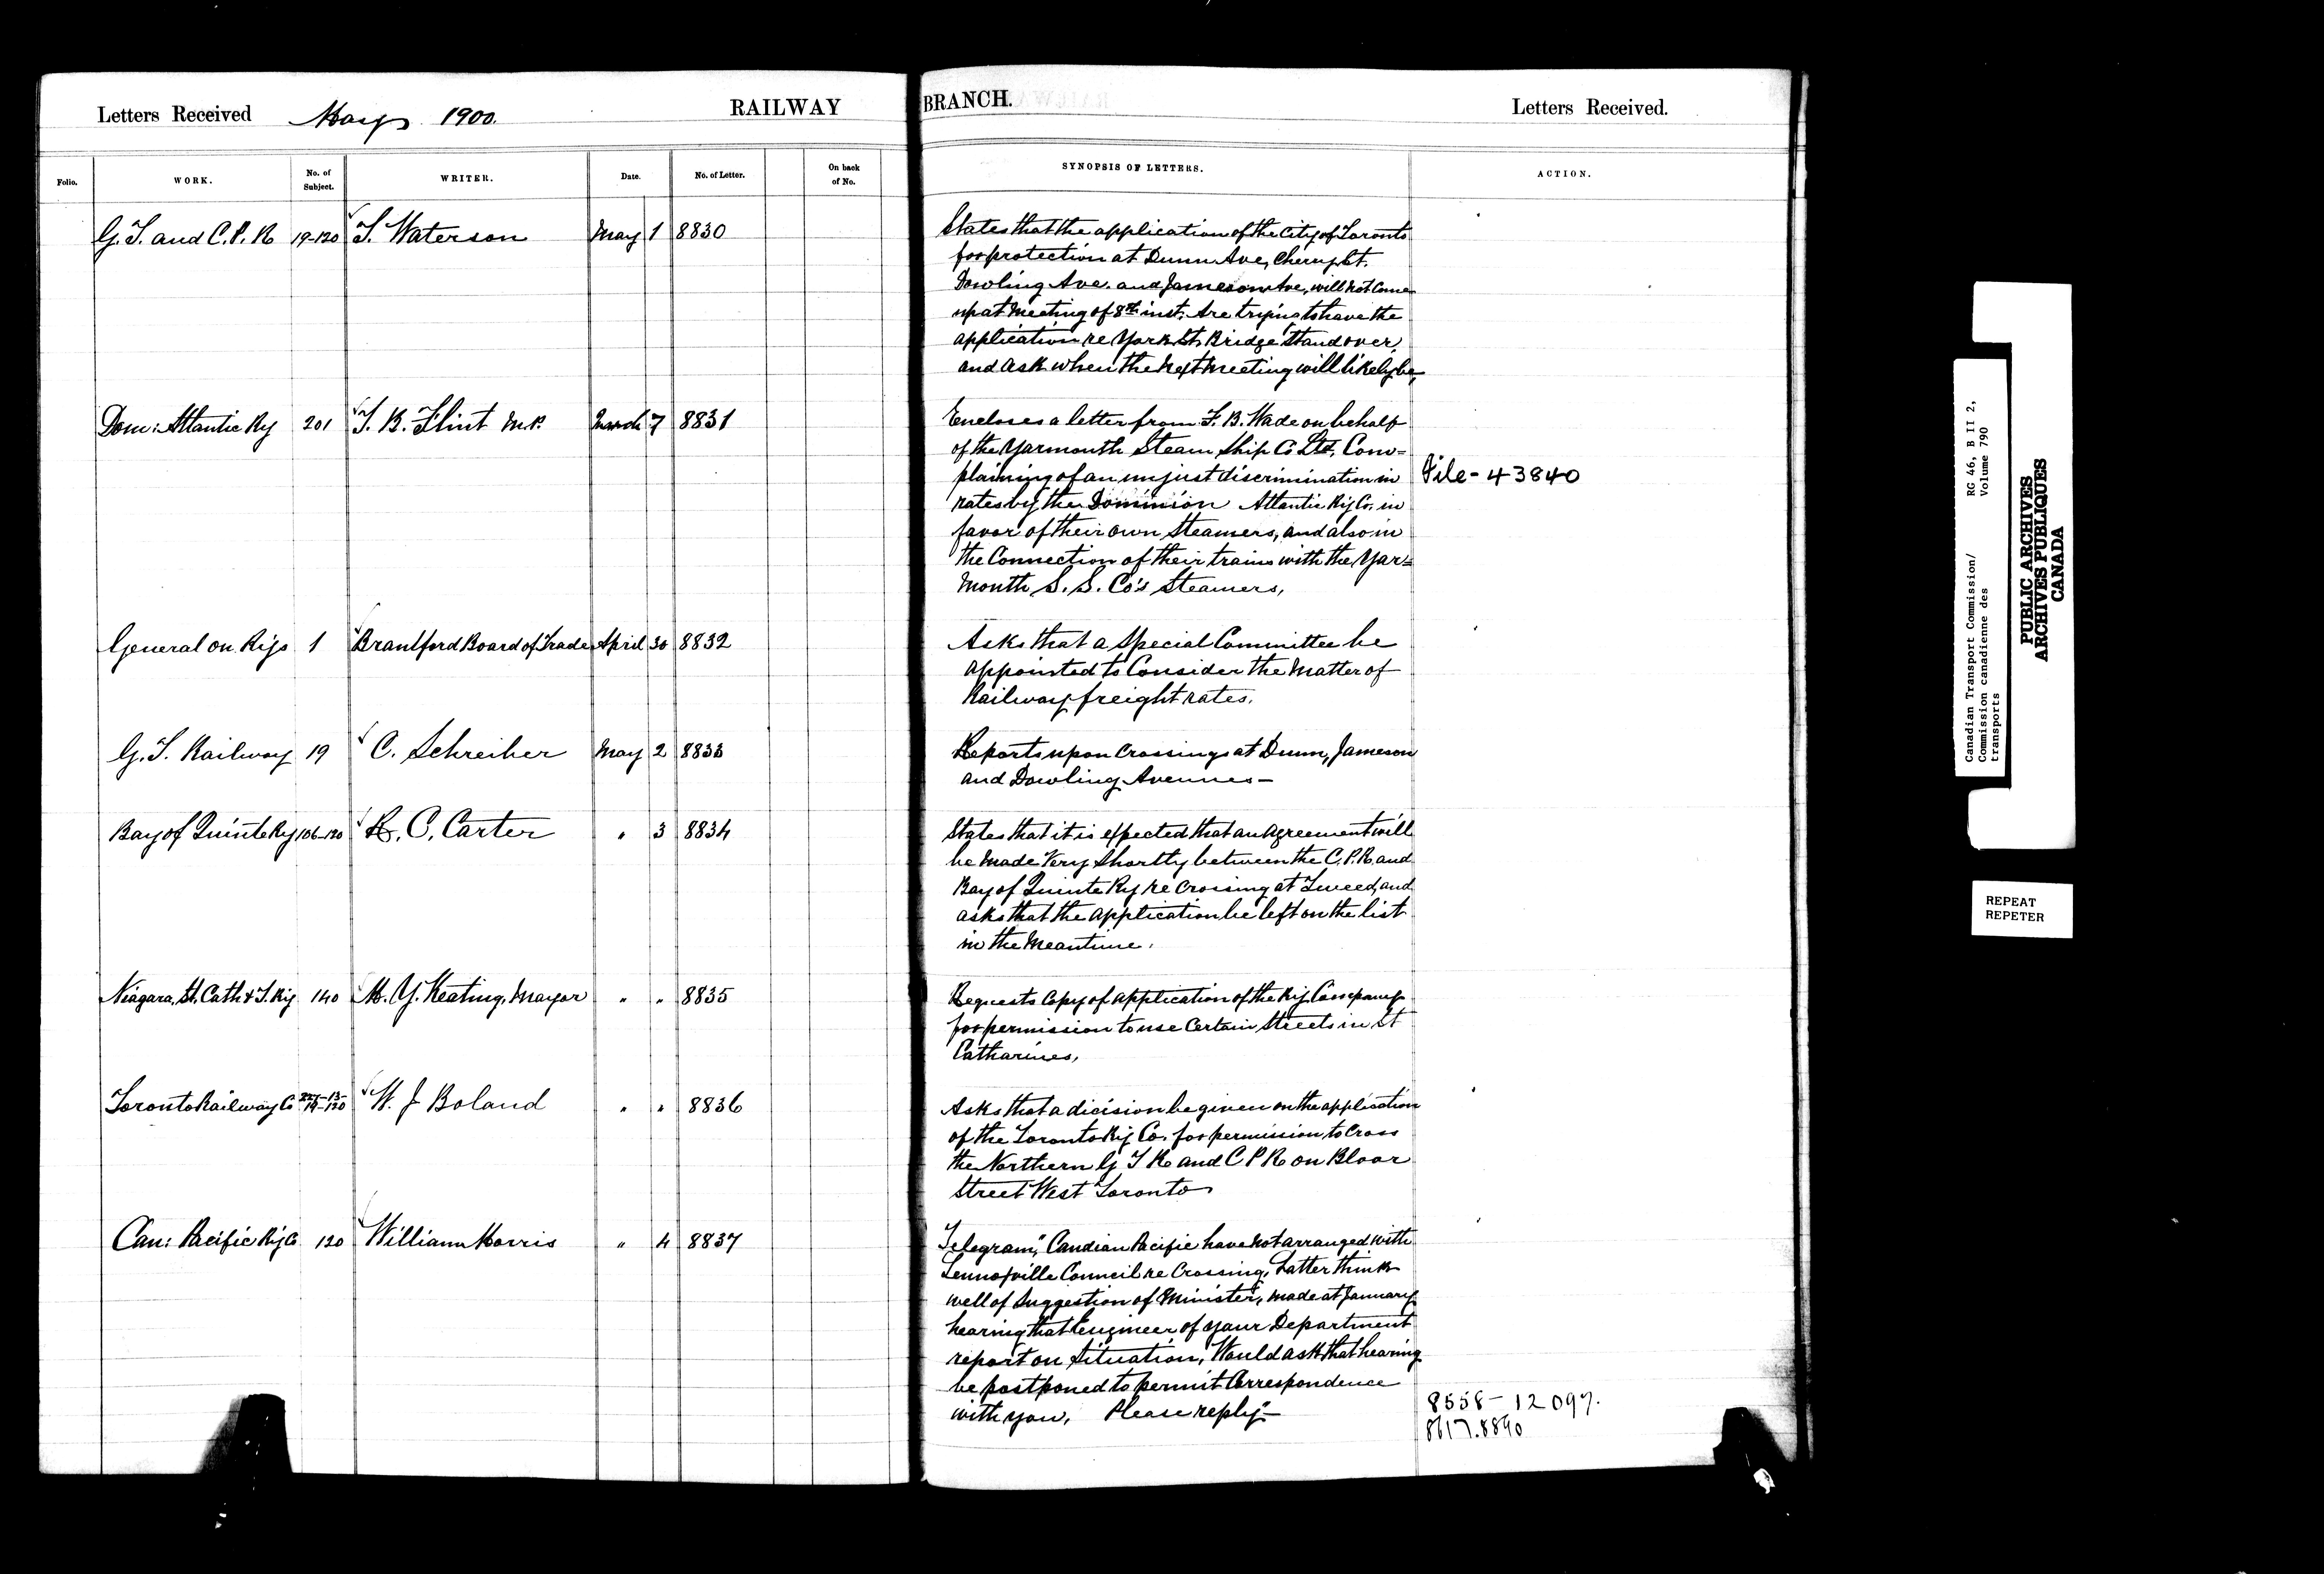 Letters Received May 1900. RAILWAY BRANCH. Letters Received.
Folio. WORK. No. of Subject. WRITER. Date. No. of Letter. On back of No. SYNOPSIS OF LETTERS. ACTION.
G. T. and C. P. R 19-120 T. Waterson May 1 8830
States that the application of the City of Toronto
for protection at Dunn Ave, Cherry St.
Dowling Ave. and Jameson Ave, will not come
up at meeting of 8th inst. Are trying to have the
application re York St. Bridge stand over,
and ask when the next meeting will likely be,
Dom: Atlantic Ry 201 T. B. Flint M.P. March 7 8831
Encloses a letter from F. B. Wade on behalf
of the Yarmouth Steam Ship Co Ltd, Com=
plaining of an unjust discrimination in File-43840
rates by the Dominion Atlantic Ry Co. in
favor of their own Steamers, and also in
the Connection of their trains with the Yar=
mouth S. S. Co's Steamers,
General on Rys 1 Brantford Board of Trade April 30 8832
Asks that a Special Committee be
appointed to Consider the Matter of
Railway freight rates.
G. T. Railway 19 C. Schreiber May 2 8833
Reports upon Crossings at Dunn, Jameson
and Dowling Avenues—
Bay of Quinte Ry 106-120 R. C. Carter " 3 8834
States that it is expected that an Agreement will
be made Very Shortly between the C. P. R. and
Bay of Quinte Ry re Crossing at Tweed, and
asks that the application be left on the list
in the Meantime.
Niagara, St. Cath & T. Ry 140 M. Y. Keating, Mayor " " 8835
Requests Copy of application of the Ry. Company
for permission to use Certain Streets in St
Catharines,
Toronto Railway Co 19-120 W. J Boland " " 8836
Asks that a dicision be given on the application
of the Toronto Ry Co. for permission to Cross
the Northern G T R and C P R on Bloor
Street West Toronto
Can: Pacific Ry Co 120 William Morris " 4 8837
Telegram, "Candian Pacific have not arranged with
Lennoxville Council re Crossing, Latter think
well of Suggestion of Minister, made at January
hearing that Engineer of your Department
report on Situation, Would ask that hearing
be postponed to permit Correspondence
with you, Please reply"— 8558-12097.
8617.8840
Canadian Transport Commission/ RG 46, B II 2,
Commission canadienne des Volume 790
transports
PUBLIC ARCHIVES
ARCHIVES PUBLIQUES
CANADA
REPEAT
REPETER